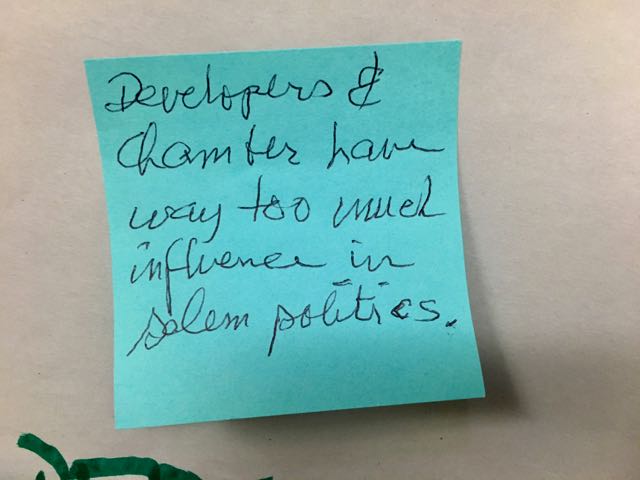 Developers &
Chamber have
way too much
influence in
Salem politics.